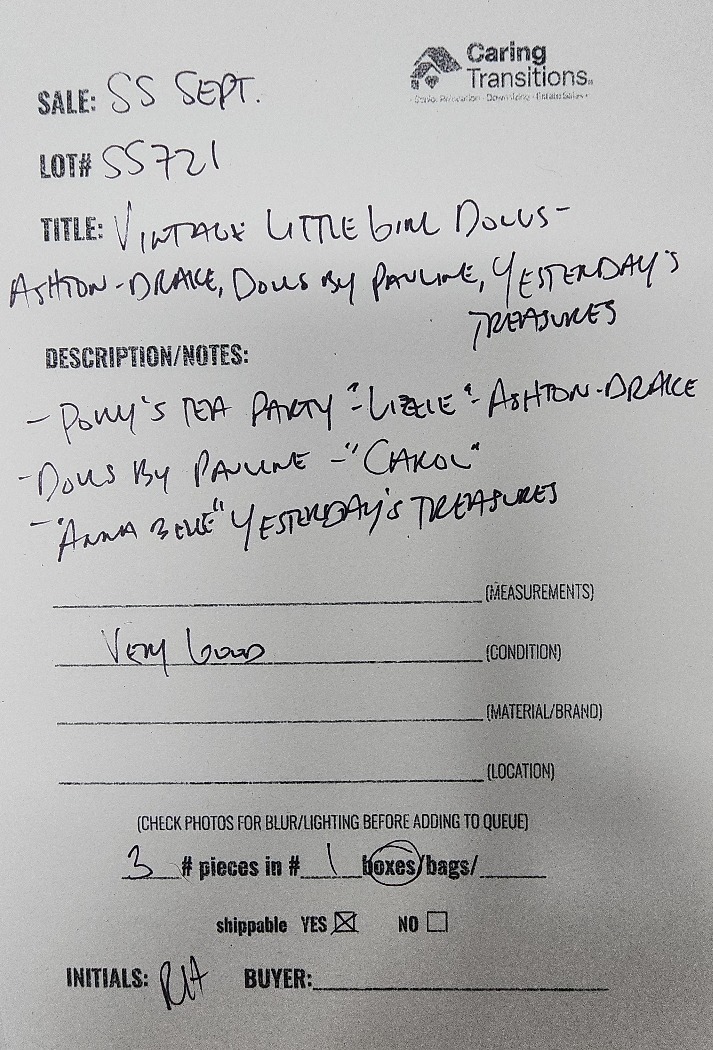 Caring
Transitions
SALE: SS SEPT.
LOT# SS721
TITLE: VINTAGE LITTLE GIRL DOLLS-
ASHTON-DRAKE, DOLLS BY PAULINE, YESTERDAY'S
TREASURES
DESCRIPTION/NOTES:
- POLLY'S TEA PARTY "-LIZZIE"- ASHTON-DRAKE
- DOLLS BY PAULINE - "CAROL"
- "ANNA BELLE" YESTERDAY'S TREASURES
(MEASUREMENTS)
VERY GOOD (CONDITION)
(MATERIAL/BRAND)
(LOCATION)
(CHECK PHOTOS FOR BLUR/LIGHTING BEFORE ADDING TO QUEUE)
3 # pieces in # 1 boxes/bags/
shippable YES NO
INITIALS: BUYER: